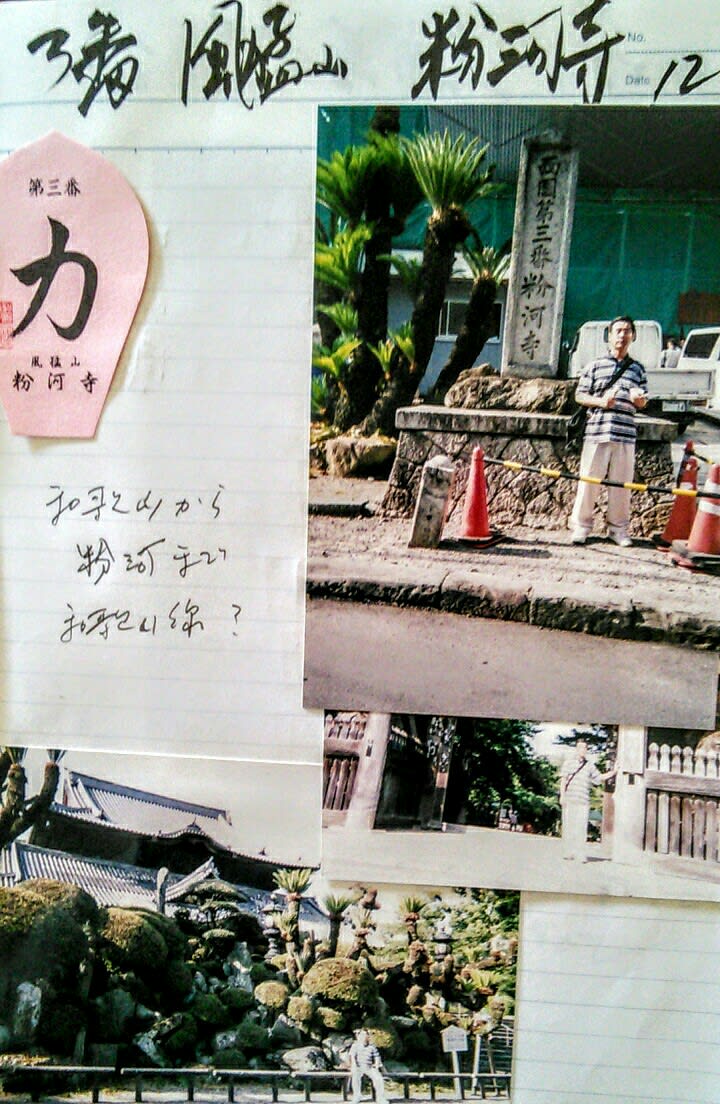 3番 風猛山 粉河寺
No.
Date 12
第三番
力
風猛山
粉河寺
西国第三番粉河寺
和歌山から
粉河まで
和歌山線?